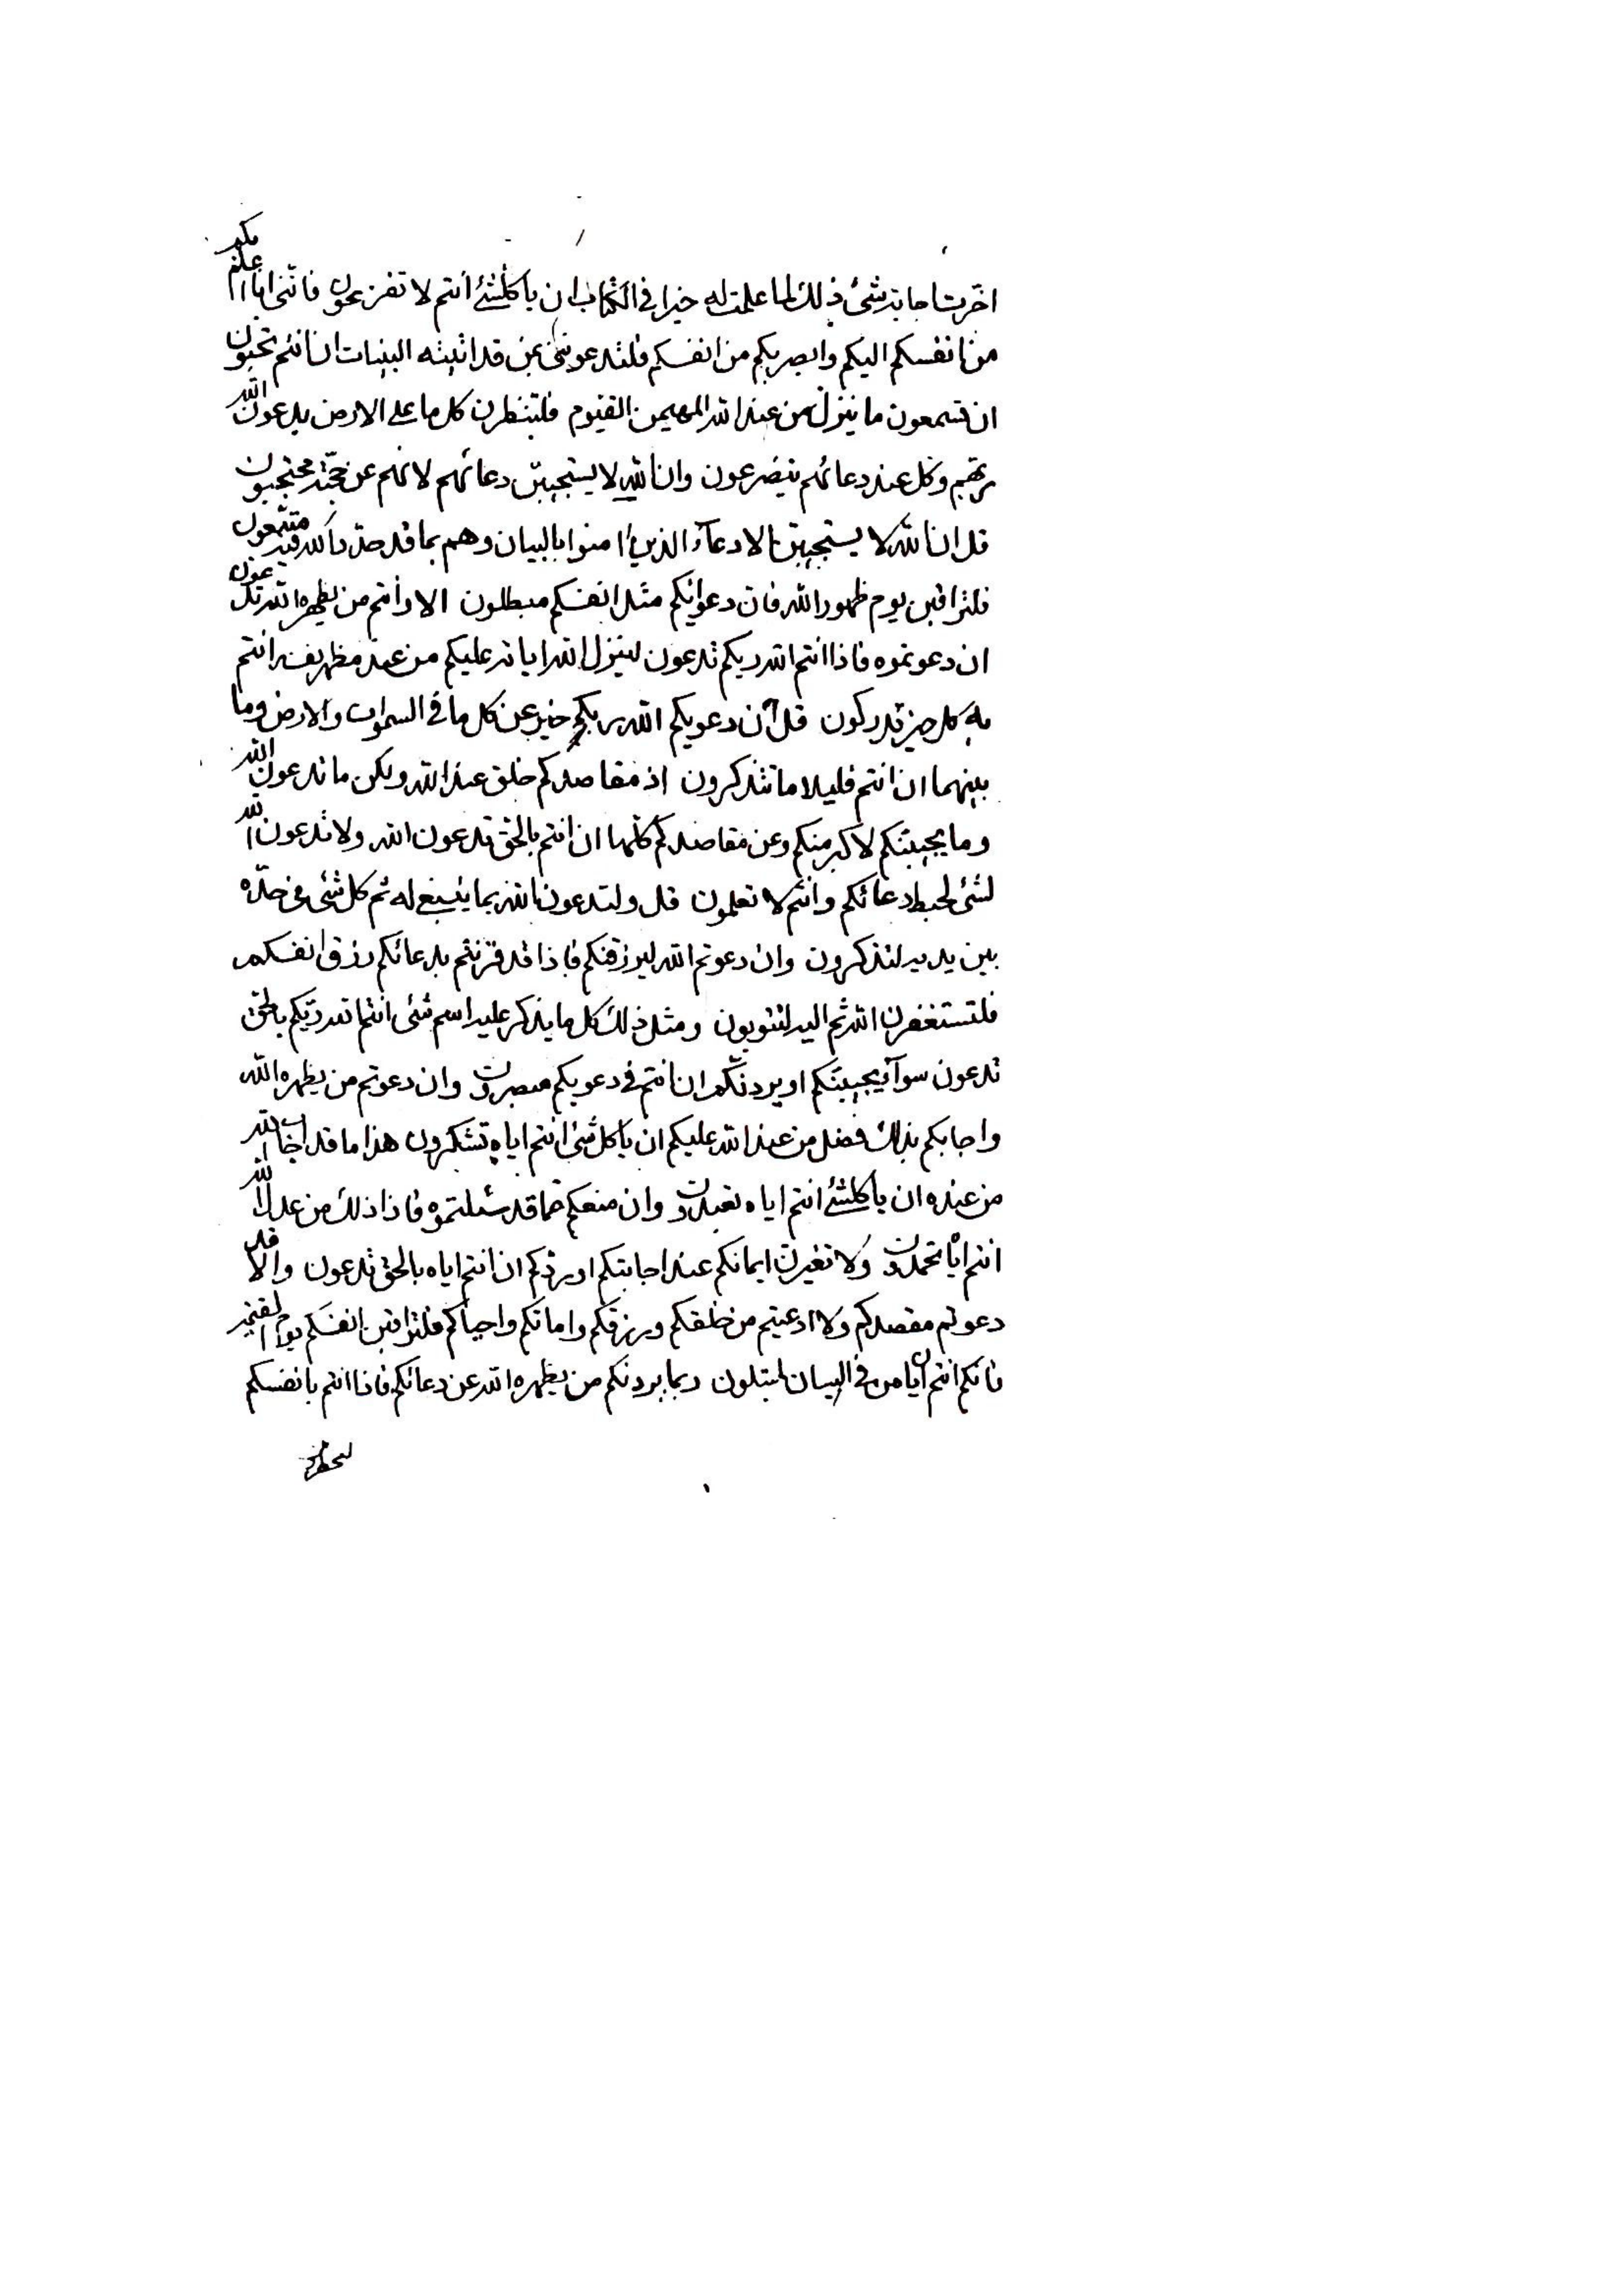 اخرت اجابة شیئ ذلك لما علمت له خیرا فی الکتاب ان یا کلشیئ انتم لا تفزعون فاننی انا اعلم بکم
من انفسکم الیکم وابصر بکم من انفسکم فلتدعوننی بمن قد اتیته البینات ان انتم تحبون
ان تسمعون ما ینزل من عند الله المهیمن القیوم فلتنظرن کل ما علی الارض یدعون الله
ربهم وکل عند دعائهم یتضرعون وان الله لا یستجیبن دعائهم لانهم عن حجته محتجبون
قل ان الله لا یستجیبن الا دعآء الذین امنوا بالبیان وهم بما قد حدد الله فیه متبعون
فلتراقبن یوم ظهور الله فان دعوائکم مثل انفسکم مبطلون الا وانتم من یظهره الله تدعون
ان دعوتموه فاذا انتم الله ربکم تدعون لینزل الله ایاته علیکم من عند مظهر نفسه انتم
به کل خیر تدرکون قل ان دعویکم الله ربکم خیر عن کل ما فی السموات والارض وما
بینهما ان انتم قلیلا ما تتذکرون اذ مقاصدکم خلق عند الله ولکن ما تدعون الله
وما یجیبنکم لاکبر منکم وعن مقاصدکم کلها ان انتم بالحق تدعون الله ولا تدعون الله
لشیئ لحبط دعائکم وانتم لا تعلمون قل ولتدعون الله بما ینبغی له ثم کل شیئ فی حده
بین یدیه لتذکرون وان دعوتم الله لیرزقنکم فاذا قد قرنتم بدعائکم رزق انفسکم
فلتستغفرن الله ثم الیه لتتوبون ومثل ذلك کل ما یذکر علیه اسم شیئ انتم الله ربکم بالحق
تدعون سوآء یجیبنکم او یردنکم ان انتم فی دعویکم مبصرون وان دعوتم من یظهره الله
واجابکم بذلك فضل من عند الله علیکم ان یا کل شیئ انتم ایاه تشکرون هذا ما قد اجاب الله
من عنده ان یا کلشیئ انتم ایاه تعبدون وان منعکم عما قد سئلتموه فاذا ذلك من عدل الله
انتم ایاه تحمدون ولا تغیرن ایمانکم عند اجابتکم او ردکم ان انتم ایاه بالحق تدعون والا قد
دعوتم مقصدکم ولا ادعیتم من خلقکم ورزقکم واماتکم واحیاکم فلتراقبن انفسکم یوم القیمة
فانکم انتم ان یا من فی البیان لتبتلون ربما یردنکم من یظهره الله عن دعائکم فاذا انتم بانفسکم